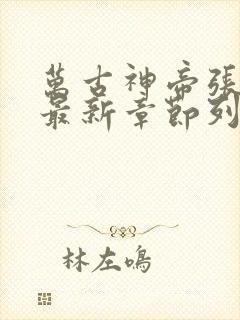 萬古神帝張
最新章節列
林左鳴